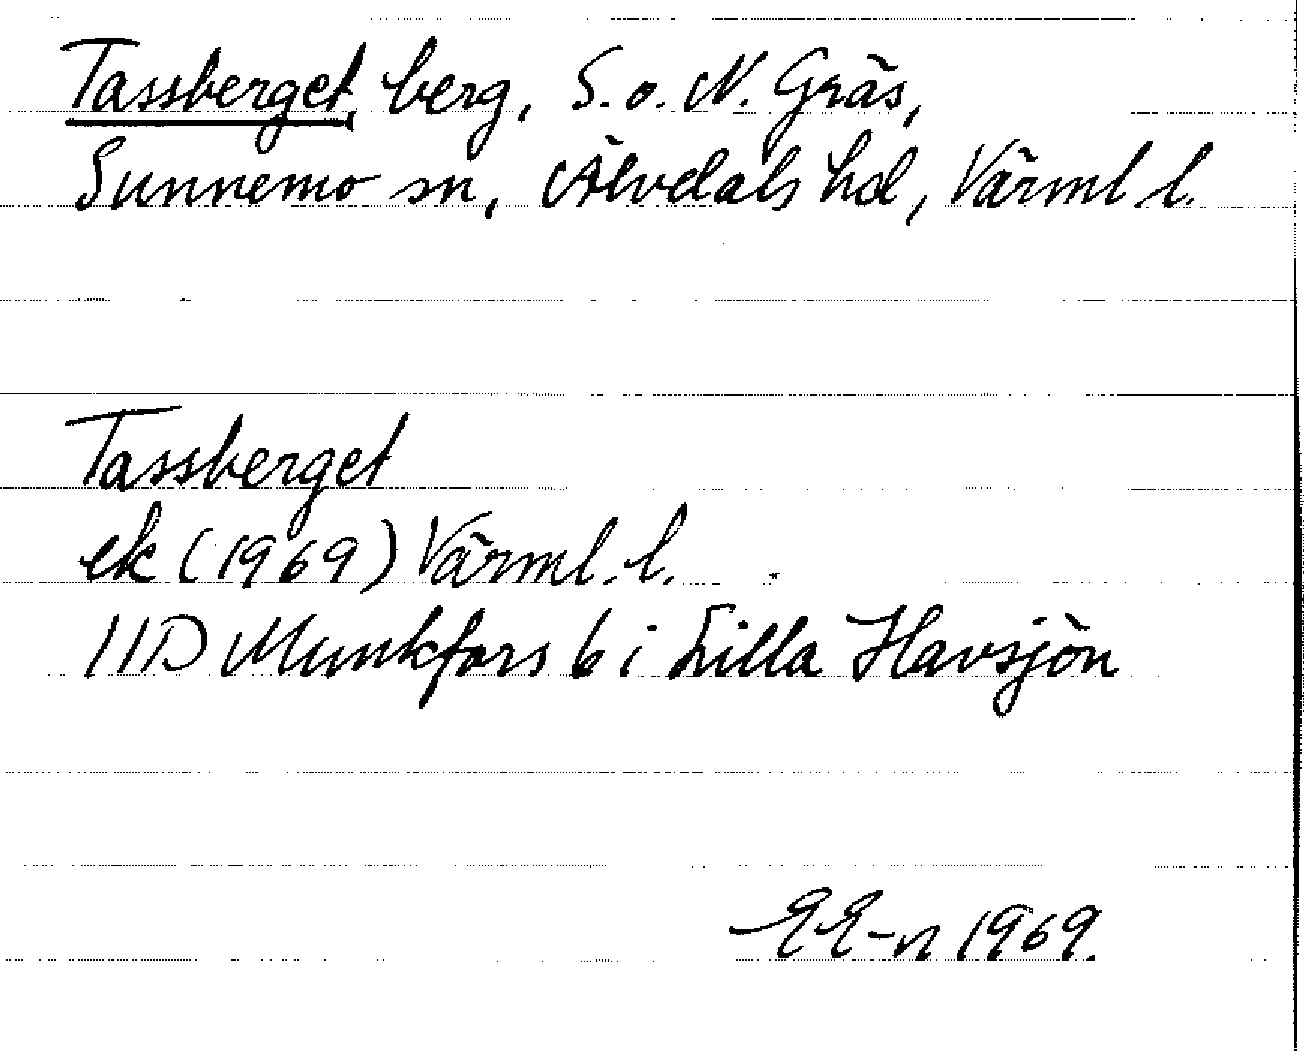 Tassberget, berg, S.o. N. Gräs,
Sunnemo sn, Älvdals hd, Värml l.
Tassberget
ek (1969) Värml. l.
11D Munkfors 6 i Lilla Havsjön
EE-n 1969.